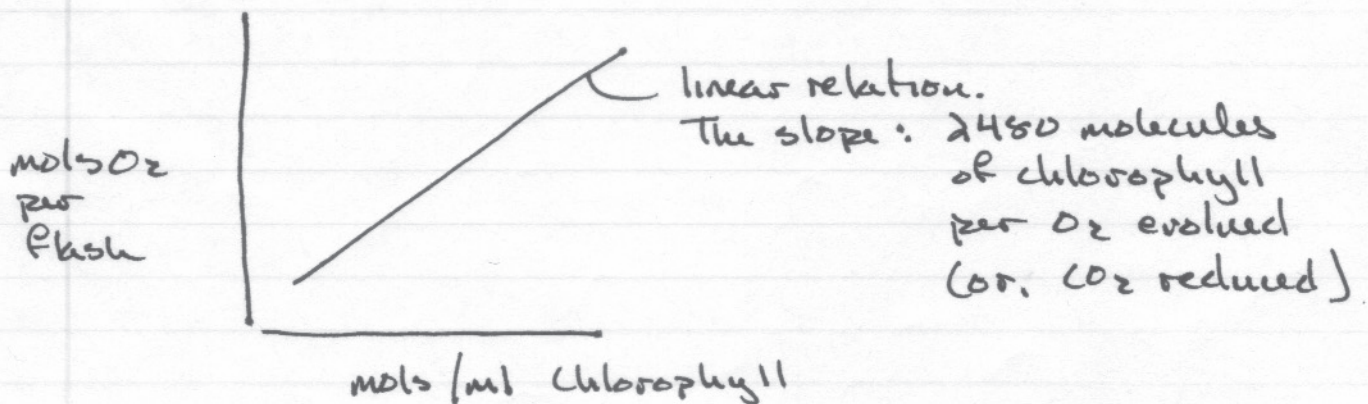 mols O₂
per
flash
linear relation.
The slope: 2480 molecules
of chlorophyll
per O₂ evolved
(or, CO₂ reduced)
mols/ml Chlorophyll